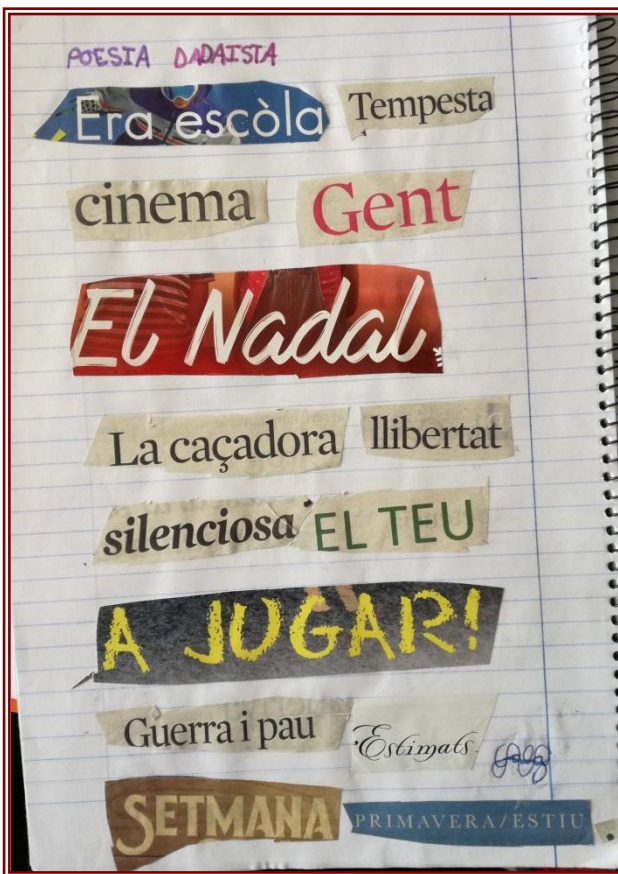 POESIA DADAISTA
Era escòla Tempesta
cinema Gent
El Nadal
La caçadora llibertat
silenciosa EL TEU
A JUGAR!
Guerra i pau Estimats
SETMANA PRIMAVERA/ESTIU